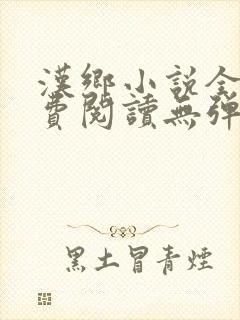 漢鄉小說全
費閱讀無彈
黑土冒青煙